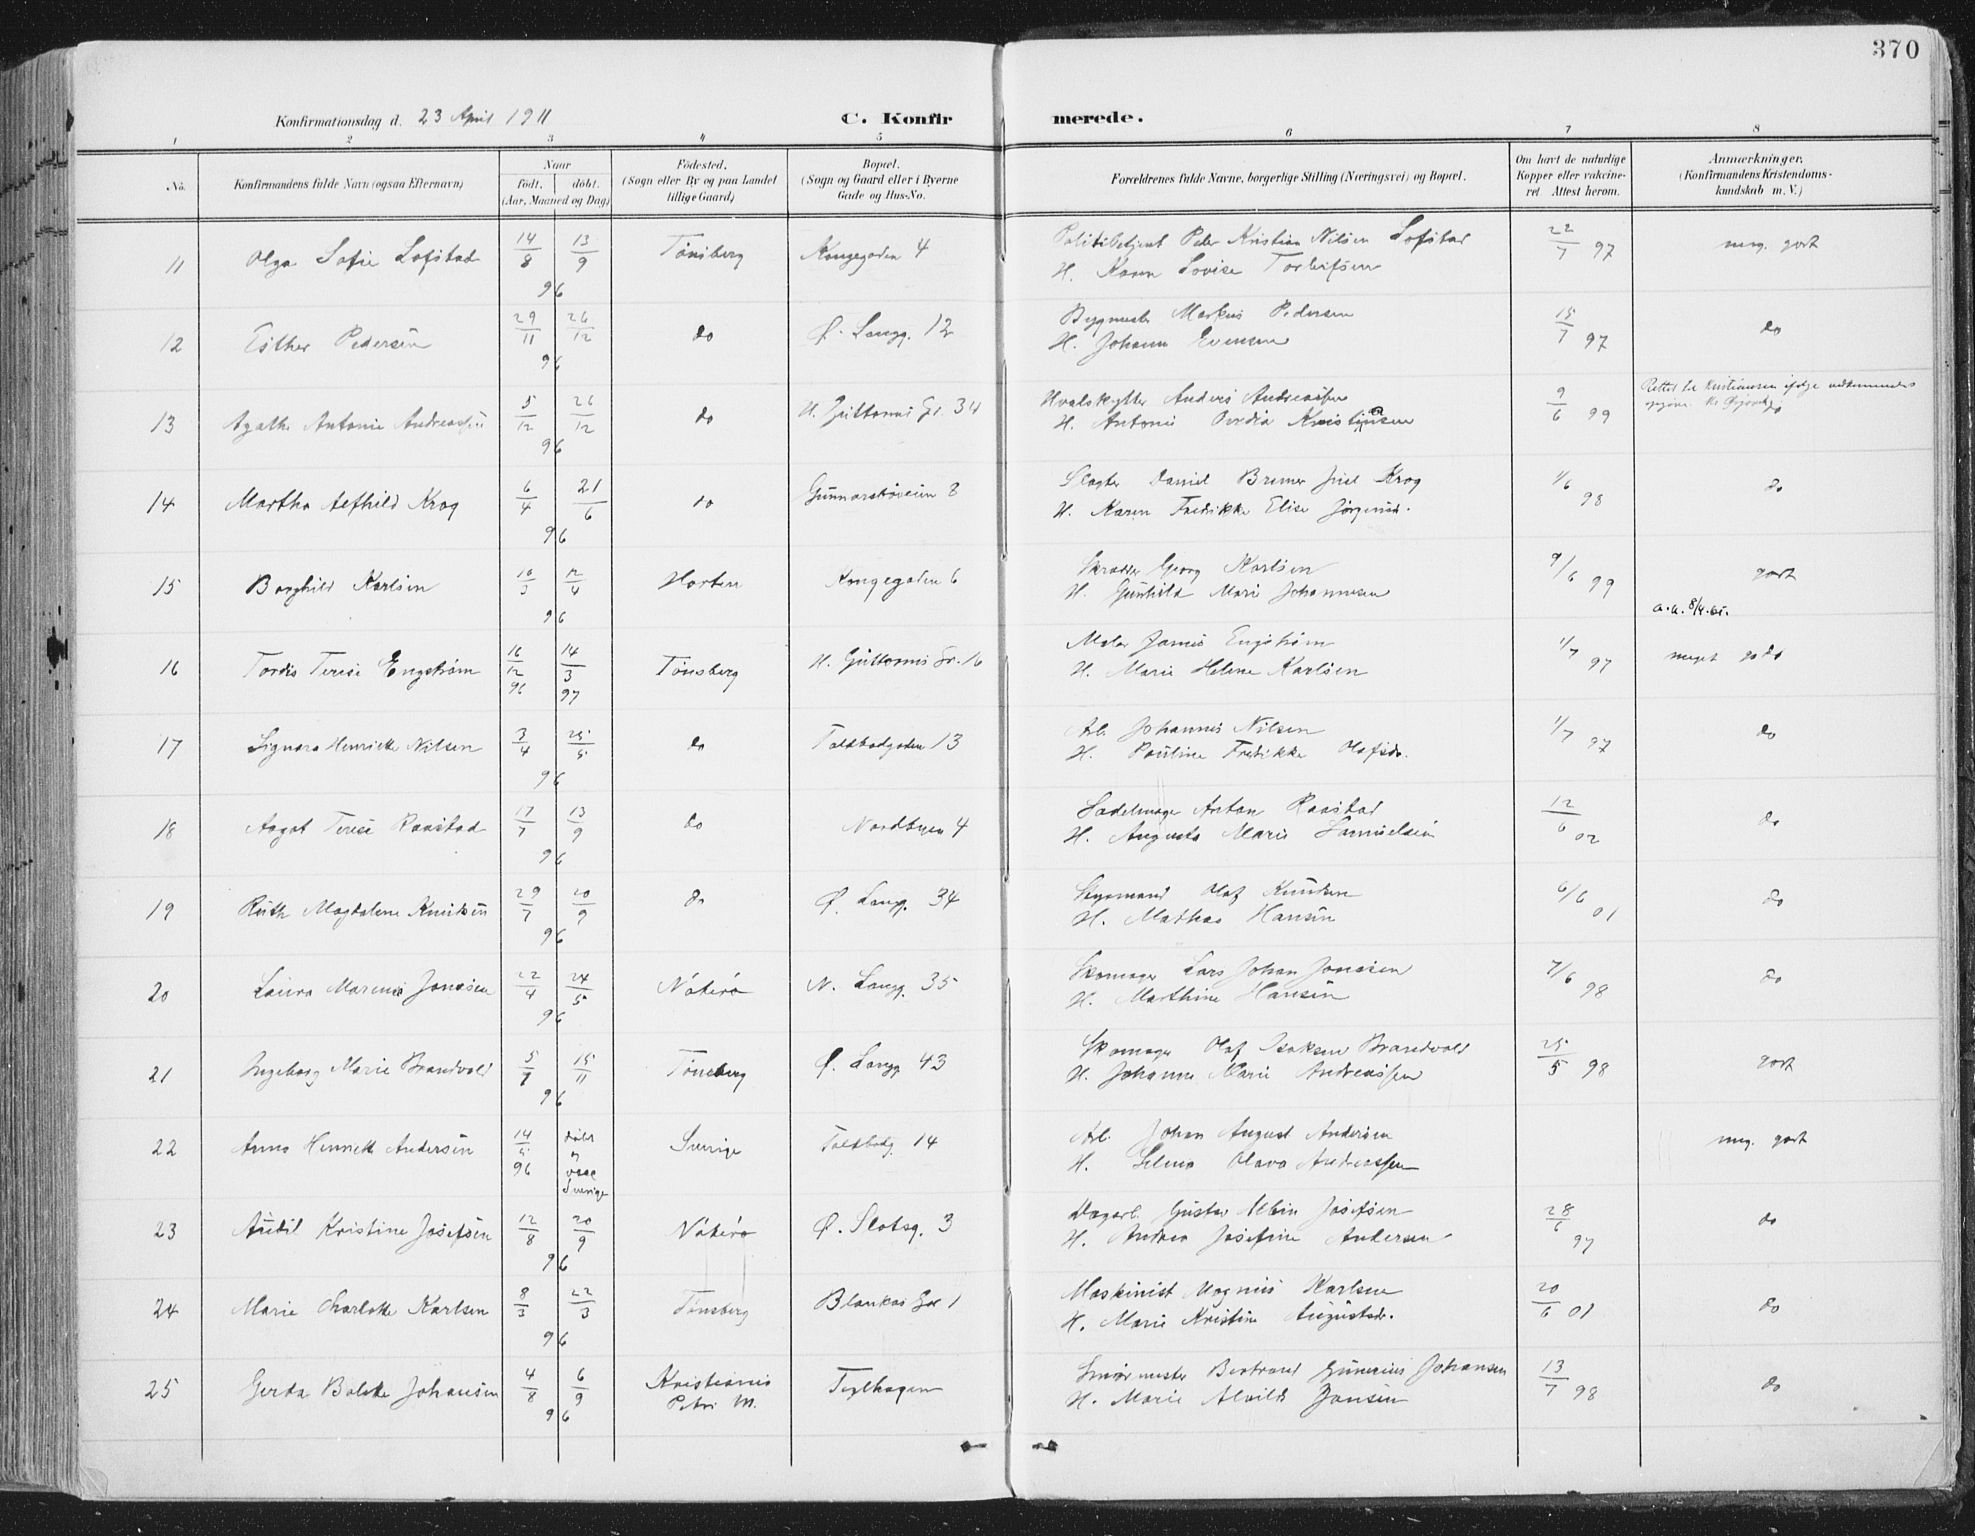 370
Konfirmationsdag d. 23 April 1911
C. Konfirmerede.
1 2 3 4 5 6 7 8
No.
Konfirmandens fulde Navn (ogsaa Efternavn)
Naar
födt. döbt.
(Aar, Maaned og Dag)
Födested.
(Sogn eller By og paa Landet
tillige Gaard)
Bopæl.
(Sogn og Gaard eller i Byerne
Gade og Hus-No.
Forældrenes fulde Navne, borgerlige Stilling (Næringsvei) og Bopæl.
Om havt de naturlige
Kopper eller vakcine-
ret Attest herom.
Anmærkninger.
(Konfirmandens Kristendoms-
kundskab m. V.)
11 Olga Sofie Lofstad 14/8 13/9 96 Tønsberg Kongegaden 4 Politibetjent Peter Kristian Nilsen Lofstad 22/7 97 meg. godt
H. Karen Lovise Torleifsen
12 Esther Pedersen 29/11 26/12 96 do Ø. Langg. 12 Bygmester Markus Pedersen 15/7 97 do
H. Johanne Evensen
13 Agathe Antonie Andreassen 5/12 26/12 96 do H. Guttorms Gt. 34 Hvalskytter Anders Andreassen 9/6 99 Rettet til Kristiansen ifølge vedkommendes
opgive. do
H. Antonie Kristiansen
14 Martha Alfhild Krog 6/4 21/6 96 do Gunnarsbøveien 8 Slagter Daniel Bremer Juel Krog 1/6 98 do
H. Karen Fredrikke Elise Jørgensd.
15 Borghild Karlsen 16/3 12/4 96 Horten Kongegaden 6 Skrædder Georg Karlsen 9/6 99 godt
H. Gunhild Marie Johannesen
a.a. 8/4.61.
16 Tordis Terese Engstrøm 16/12 96 14/3 97 Tønsberg H. Guttorms Gt. 16 Maler James Engstrøm 1/7 97 meget godt
H. Marie Helene Karlsen
17 Signora Henriette Nilsen 3/4 25/5 96 do Toldbodgaden 13 Arb. Johannes Nilsen 1/7 97 do
H. Pauline Fredrikke Olafsd.
18 Aagot Terese Raastad 17/7 13/9 96 do Nordbyen 4 Sadelmager Anton Raastad 12/6 02 do
H. Augusta Marie Samuelsen
19 Ruth Magdalene Knudsen 29/7 20/9 96 do Ø. Langg. 34 Styrmand Olaf Knudsen 6/6 01 do
H. Mathea Hansen
20 Laura Marense Jonasen 22/4 24/5 96 Nøterø N. Langg. 35 Skomager Lars Johan Jonasen 7/6 98 do
H. Marthine Hansen
21 Ingeborg Marie Brandvold 5/7 15/11 96 Tønsberg Ø. Langg 43 Skomager Olaf Isaksen Brandvold 25/5 98 godt
H. Johanne Marie Andreassen
22 Anna Henriette Andersen 14/5 96 døbt
Sverige Sverige Toldbodg. 14 Arb. Johan August Andersen meg. godt
H. Selma Olava Andreassen
23 Aüdil Kristine Josefsen 12/8 20/9 96 Nøterø Ø. Slotsg. 3 Dagarb. Gustav Albin Josefsen 28/6 97 do
H. Andrea Josefine Andersen
24 Marie Charlotte Karlsen 8/3 22/3 96 Tønsberg Blankas Gt 1 Maskinist Magnus Karlsen 20/6 01 do
H. Marie Kristine Augustsdr.
25 Gerda Bolette Johansen 4/8 6/9 96 Kristiania
Petri M. Teglhagen Smørmester Bertrand Gunerius Johansen 13/7 98 do
H. Marie Alvilde Jansen